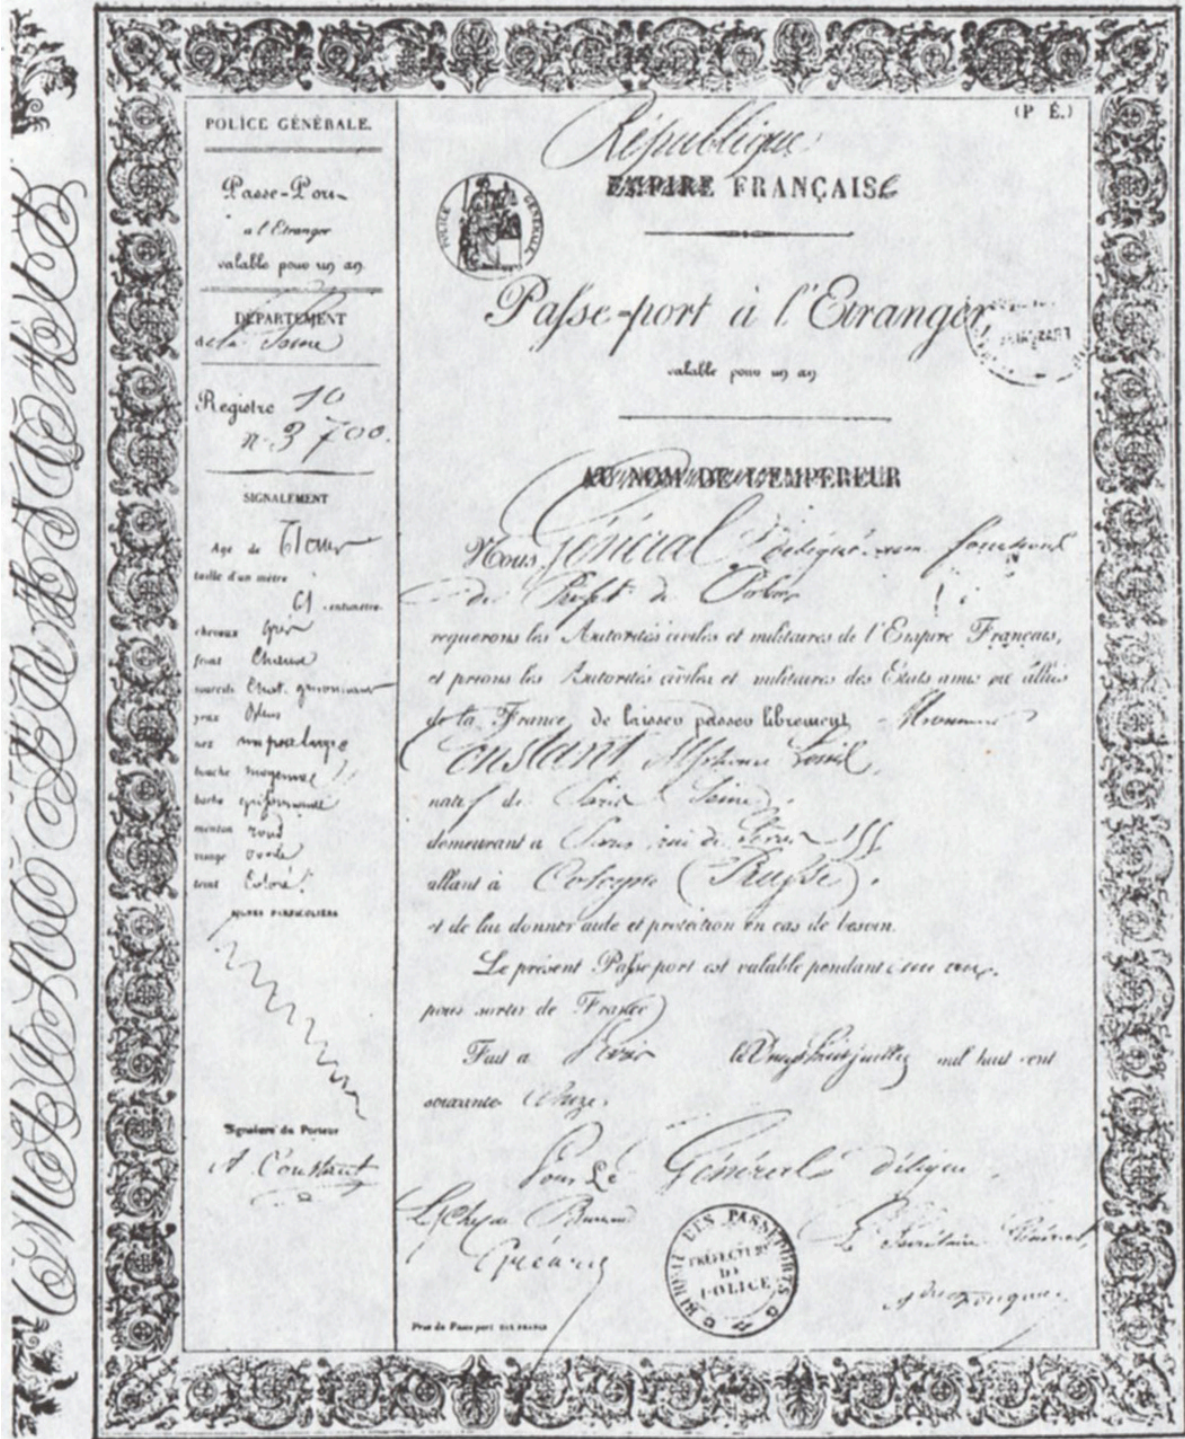 POLICE GÉNÉRALE.
Passe-Port
a l'Etranger
valable pour un an
DÉPARTEMENT
de la Seine
Registre 10
n. 3700.
SIGNALEMENT
Age de
taille d'un mètre
61 centimètres
cheveux gris
front Chauve
sourcils Chat. grisonnants
yeux bleus
nez un peu large
bouche moyenne
barbe grisonnante
menton rond
visage ovale
teint Coloré
SIGNES PARTICULIERS
Signature du Porteur
A Constant
(P É.)
République
EMPIRE FRANÇAISE
POLICE GÉNÉRALE
Passe-port à l'Etranger,
valable pour un an
AU NOM DE L'EMPEREUR
Nous, Général délégué aux fonctions
de Préfet de Police
requerons les Autorités civiles et militaires de l'Empire Français,
et prions les Autorités civiles et militaires des États amis ou alliés
de la France, de laisser passer librement Monsieur
Constant Alphonse Louis
natif de Paris (Seine)
demeurant a Paris rue de Sèvres 155
allant à Cologne (Prusse).
et de lui donner aide et protection en cas de besoin.
Le présent Passe port est valable pendant un
pour sortir de France
Fait a Paris le juillet mil huit cent
soixante onze.
Pour Le Général délégué
Le Chef du Bureau
Le Secrétaire Général,
BUREAU DES PASSEPORTS
PRÉFECTURE
DE
POLICE
Prix du Passe port